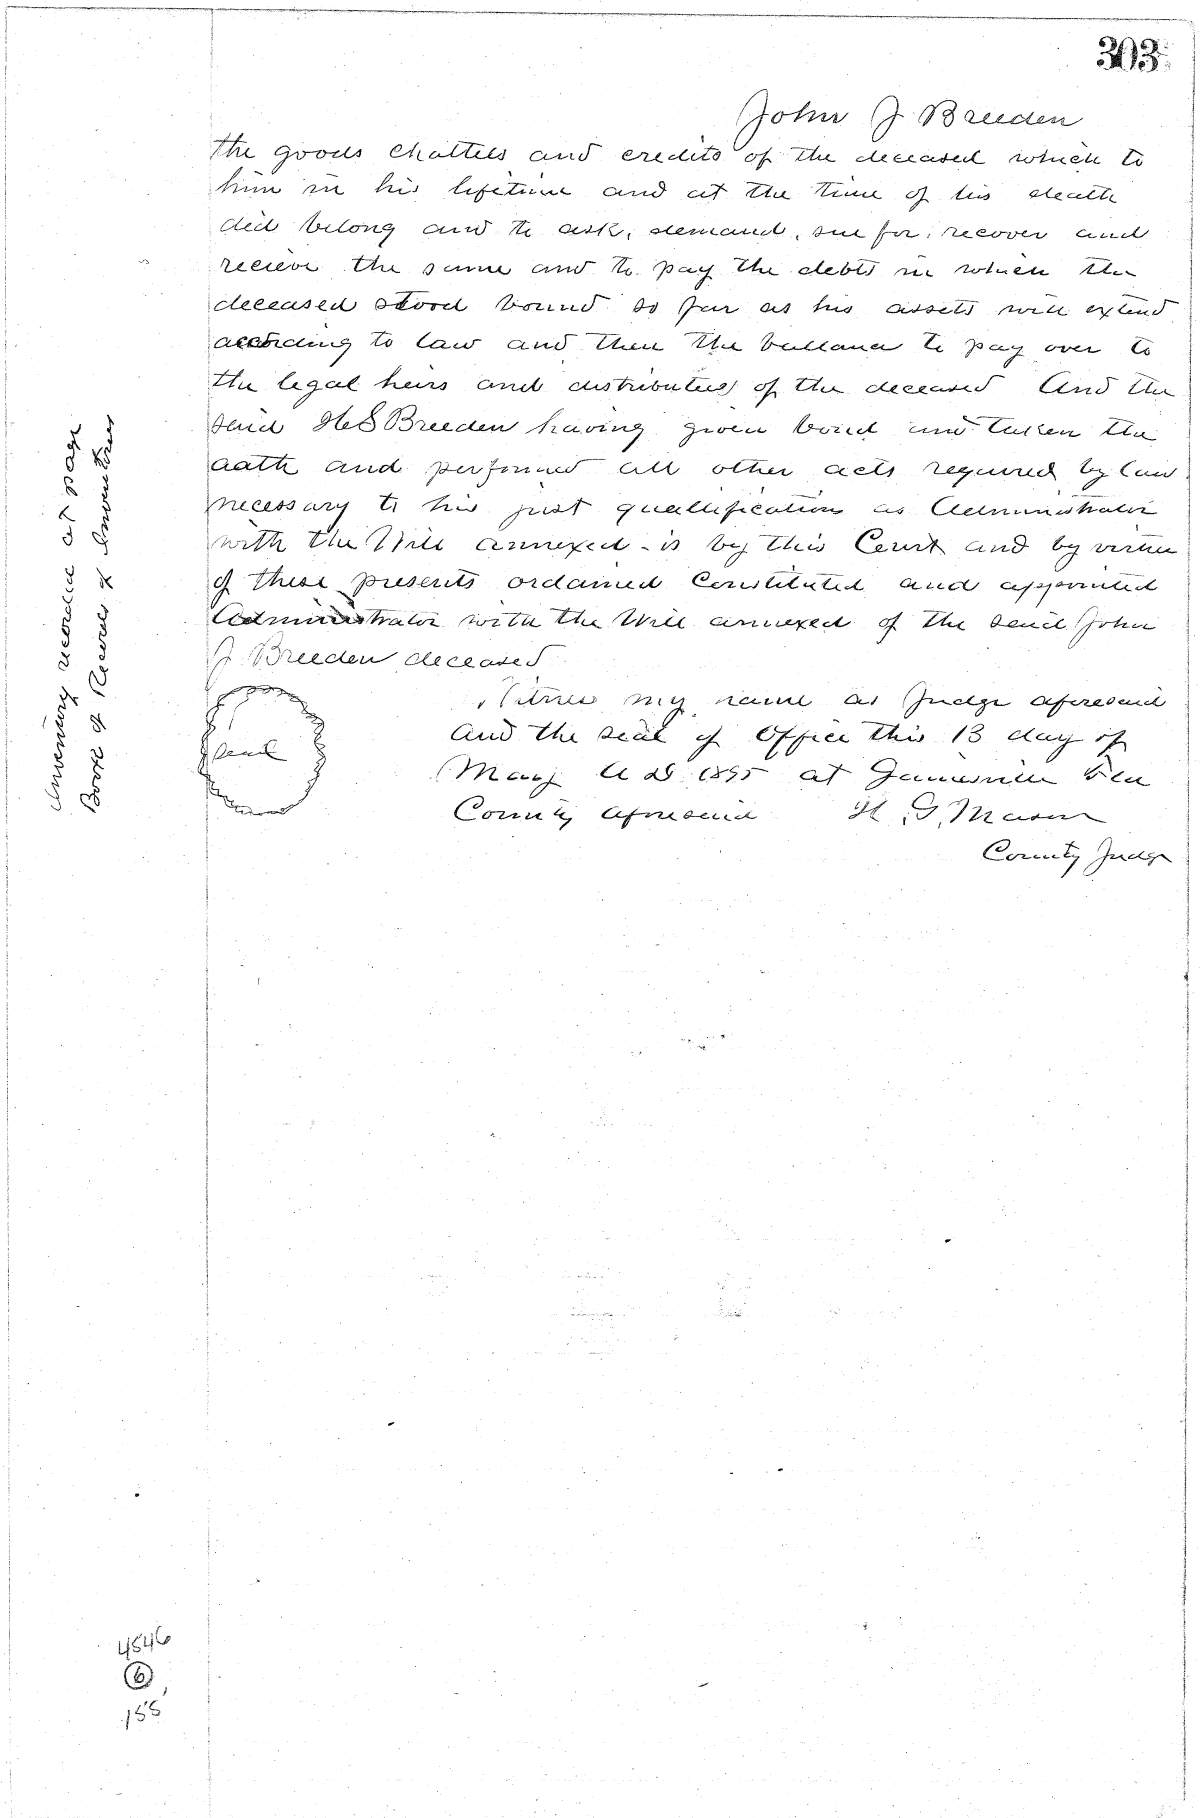 303
John J Breeden
the goods chattels and credits of the deceased which to
him in his lifetime and at the time of his death
did belong and to ask, demand, sue for, recover and
recieve the same and to pay the debts in which the
deceased stood bound so far as his assets will extend
according to law and then the ballance to pay over to
the legal heirs and distributees of the deceased And the
said H S Breeden having given bond and taken the
oath and performed all other acts required by law
necessary to his just quallification as Administrator
with the Will annexed - is by this Court and by virtue
of these presents ordained Constituted and appointed
Administrator with the Will annexed of the said John
J Breeden deceased
Witness my name as Judge aforesaid
Seal
and the seal of Office this 13 day of
May A D 1895 at
County aforesaid H. G. Mason
County Judge
Inventory recorded at page
Book of Records of Inventories
4546
6
155